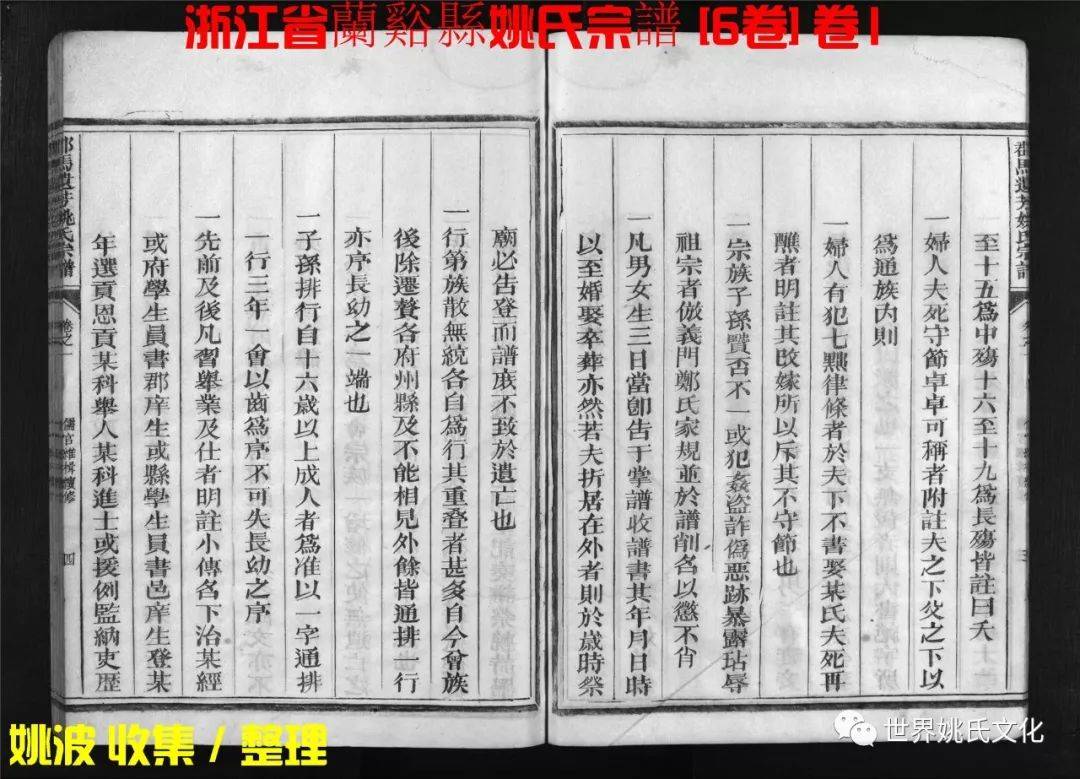 浙江省蘭谿縣姚氏宗譜 [6卷] 卷1
至十五爲中殤十六至十九爲長殤皆註曰夭
一婦人夫死守節卓卓可稱者附註夫之下父之下以
爲通族內則
一婦人有犯七黜律條者於夫下不書娶某氏夫死再
醮者明註其改嫁所以斥其不守節也
一宗族子孫賢否不一或犯姦盜詐僞惡跡暴露玷辱
祖宗者倣義門鄭氏家規並於譜削名以懲不肖
一凡男女生三日當卽告于掌譜收譜書其年月日時
以至婚娶卒葬亦然若夫折居在外者則於歲時祭
廟必告登而譜庶不致於遺亡也
一行第族散無統各自爲行其重叠者甚多自今會族
後除遷贅各府州縣及不能相見外餘皆通排一行
亦序長幼之一端也
一子孫排行自十六歲以上成人者爲准以一字通排
一行三年一會以齒爲序不可失長幼之序
一先前及後凡習舉業及仕者明註小傳名下治某經
或府學生員書郡庠生或縣學生員書邑庠生登某
年選貢恩貢某科舉人某科進士或援例監納吏歷
馬遺芳姚氏宗譜
卷之一
四
姚波 收集 / 整理
世界姚氏文化